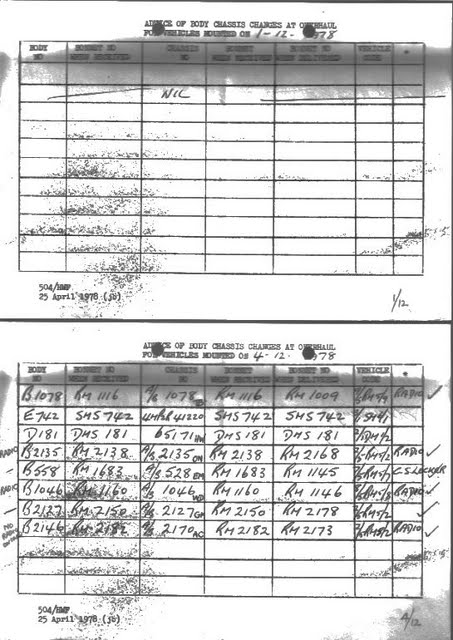 ADVICE OF BODY CHASSIS CHANGES AT OVERHAUL
FOR VEHICLES MOUNTED ON 1-12. 78
BODY NO BONNET NO WHEN RECEIVED CHASSIS NO BONNET WHEN DELIVERED VEHICLE CODE
NIL
504/HMP
25 April 1978 (jb)
1/12
ADVICE OF BODY CHASSIS CHANGES AT OVERHAUL
FOR VEHICLES MOUNTED ON 4-12. 78
BODY NO BONNET NO WHEN RECEIVED CHASSIS NO BONNET WHEN RECEIVED WHEN DELIVERED VEHICLE CODE
B1078 RM 1116 A/S 1078 RM 1116 RM 1009 RADIO ✓
E742 SMS 742 41220 SMS 742 SMS 742
D181 DMS 181 65171 DMS 181 DMS 181
RADIO B2135 RM 2138 A/S 2135 RM 2138 RM 2168 RADIO ✓
B558 RM 1683 A/S 528 RM 1683 RM 1145 LOCKER
RADIO B1046 RM 1160 A/S 1046 WD RM 1160 RM 1146 RADIO ✓
B2127 RM 2150 A/S 2127 RM 2150 RM 2178 ✓
NO RADIO B2146 RM 2182 A/S 2170 AC RM 2182 RM 2173 RADIO ✓
504/HMP
25 April 1978 (jb)
4/12